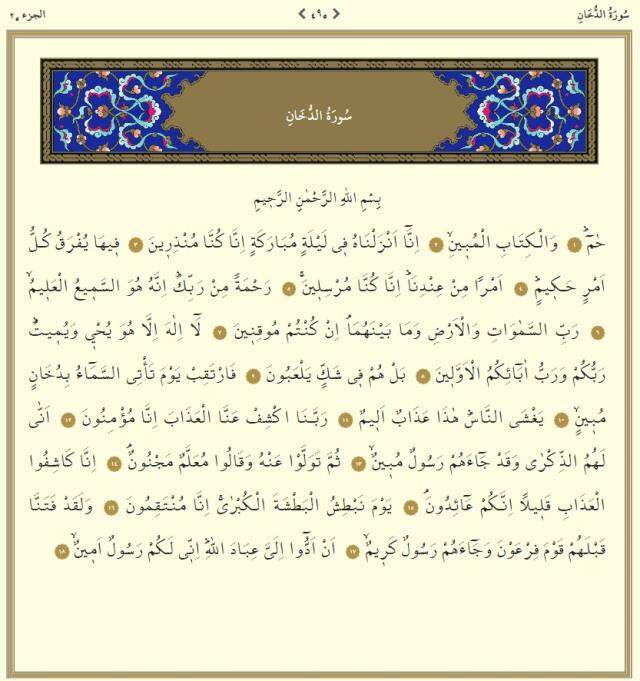 سُورَةُ الدُّخَانِ
❮ ٤٩٥ ❯
الجزء ٢٥
سُورَةُ الدُّخَانِ
بِسْمِ اللهِ الرَّحْمٰنِ الرَّحٖيمِ
حٰمٓۜ ١ وَالْكِتَابِ الْمُبٖينِۙ ٢ اِنَّٓا اَنْزَلْنَاهُ فٖي لَيْلَةٍ مُبَارَكَةٍ اِنَّا كُنَّا مُنْذِرٖينَ ٣ فٖيهَا يُفْرَقُ كُلُّ
اَمْرٍ حَكٖيمٍۜ ٤ اَمْرًا مِنْ عِنْدِنَاۜ اِنَّا كُنَّا مُرْسِلٖينَۚ ٥ رَحْمَةً مِنْ رَبِّكَۜ اِنَّهُ هُوَ السَّمٖيعُ الْعَلٖيمُۙ
٦ رَبِّ السَّمٰوَاتِ وَالْاَرْضِ وَمَا بَيْنَهُمَاۢ اِنْ كُنْتُمْ مُوقِنٖينَ ٧ لَٓا اِلٰهَ اِلَّا هُوَ يُحْيٖ وَيُمٖيتُۜ
رَبُّكُمْ وَرَبُّ اٰبَٓائِكُمُ الْاَوَّلٖينَ ٨ بَلْ هُمْ فٖي شَكٍّ يَلْعَبُونَ ٩ فَارْتَقِبْ يَوْمَ تَأْتِي السَّمَٓاءُ بِدُخَانٍ
مُبٖينٍۙ ١٠ يَغْشَى النَّاسَۜ هٰذَا عَذَابٌ اَلٖيمٌ ١١ رَبَّنَا اكْشِفْ عَنَّا الْعَذَابَ اِنَّا مُؤْمِنُونَ ١٢ اَنّٰى
لَهُمُ الذِّكْرٰى وَقَدْ جَٓاءَهُمْ رَسُولٌ مُبٖينٌۙ ١٣ ثُمَّ تَوَلَّوْا عَنْهُ وَقَالُوا مُعَلَّمٌ مَجْنُونٌۢ ١٤ اِنَّا كَاشِفُوا
الْعَذَابِ قَلٖيلًا اِنَّكُمْ عَٓائِدُونَۢ ١٥ يَوْمَ نَبْطِشُ الْبَطْشَةَ الْكُبْرٰىۚ اِنَّا مُنْتَقِمُونَ ١٦ وَلَقَدْ فَتَنَّا
قَبْلَهُمْ قَوْمَ فِرْعَوْنَ وَجَٓاءَهُمْ رَسُولٌ كَرٖيمٌۙ ١٧ اَنْ اَدُّٓوا اِلَيَّ عِبَادَ اللهِۜ اِنّٖي لَكُمْ رَسُولٌ اَمٖينٌۙ ١٨